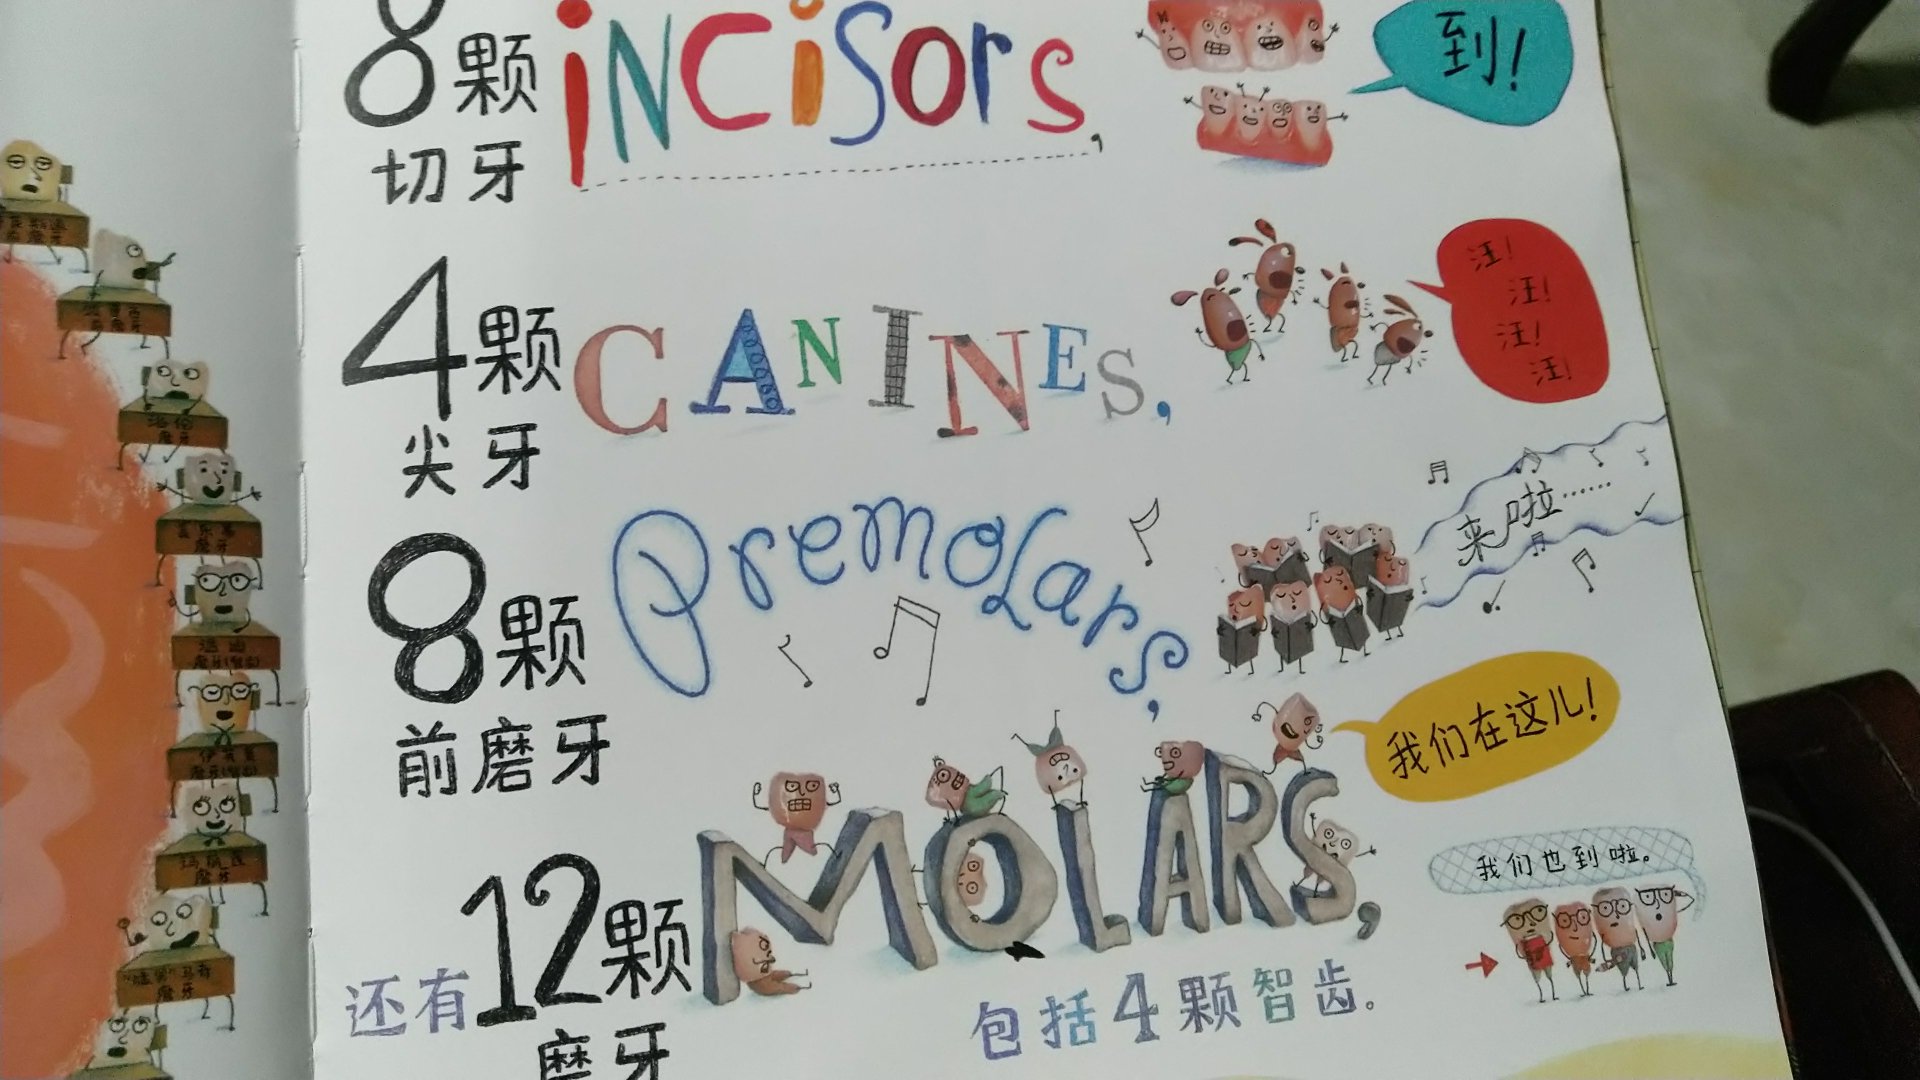 8颗
切牙
incisors,
到!
4颗
尖牙
CANINES,
汪!
汪!
汪!
汪!
8颗
前磨牙
Premolars,
来啦……
还有12颗
磨牙
MOLARS,
我们在这儿!
包括4颗智齿。
我们也到啦。
磨牙
磨牙
磨牙
磨牙